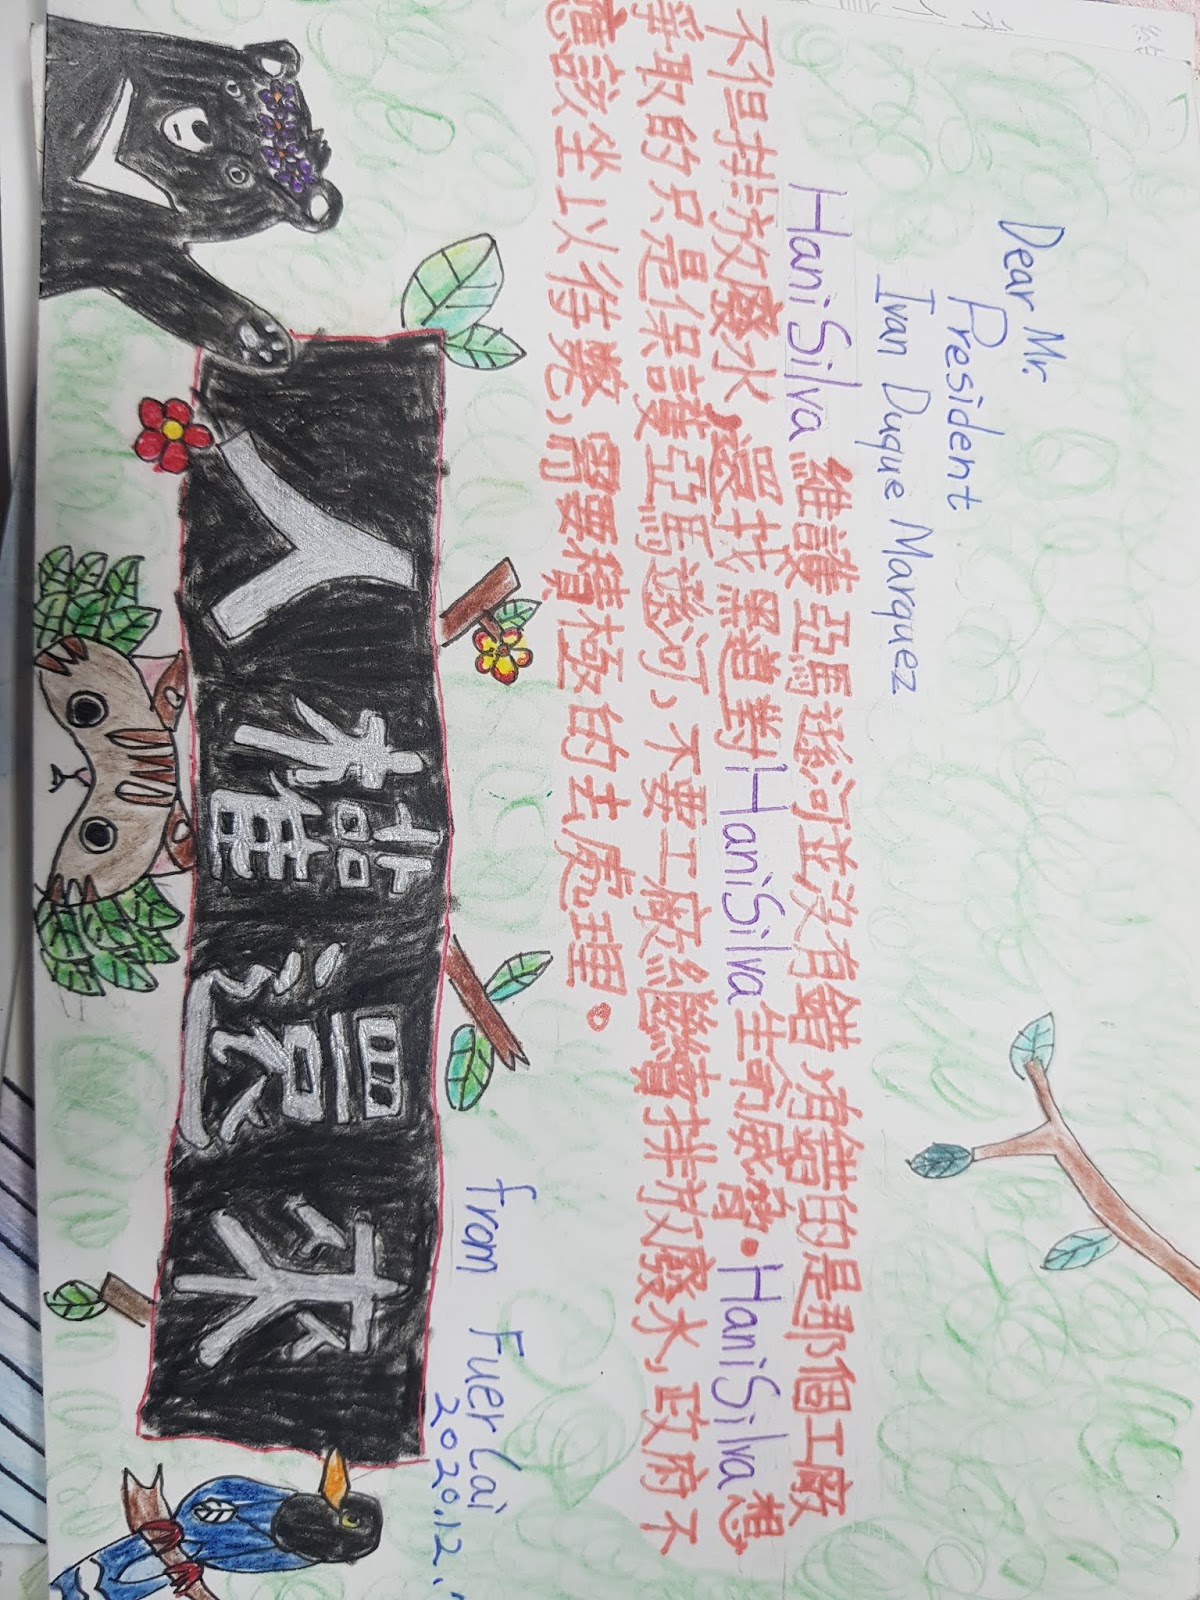 Dear Mr.
President
Ivan Duque Marquez
HaniSilva 維護亞馬遜河並沒有錯,有錯的是那個工廠
不但排放廢水,還找黑道對HaniSilva生命威脅。HaniSilva想
爭取的只是保護亞馬遜河,不要工廠繼續排放廢水,政府不
應該坐以待斃,需要積極的去處理。
from Fuer Lai
2020.12.
人權還來